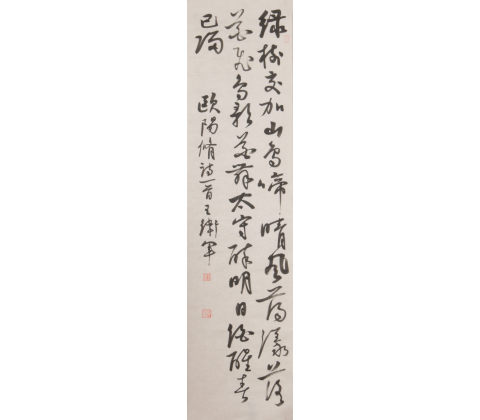 緑樹交加山鳥啼晴風蕩漾落
花飛鳥歌花舞太守醉明日酒醒春
已歸
歐陽脩詩一首王衛軍